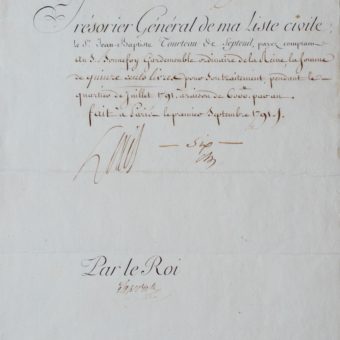 Trésorier Général de ma Liste civile,
le Sr. Jean-Baptiste Tourteau de Septeuil, payez comptant
au S. Bonnefoy Gardemeuble ordinaire de la Reine, la somme
de quinze cents livres pour son traitement pendant le
quartier de Juillet 1791. à raison de 6000.# par an
fait à Paris le premier Septembre 1791. /.
Louis
Par le Roi